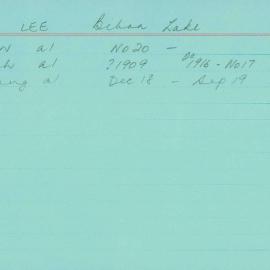 LEE Behan Lake
al No 20 -
al ?1909 1916 - No 17
al Dec 18 - Sep 19